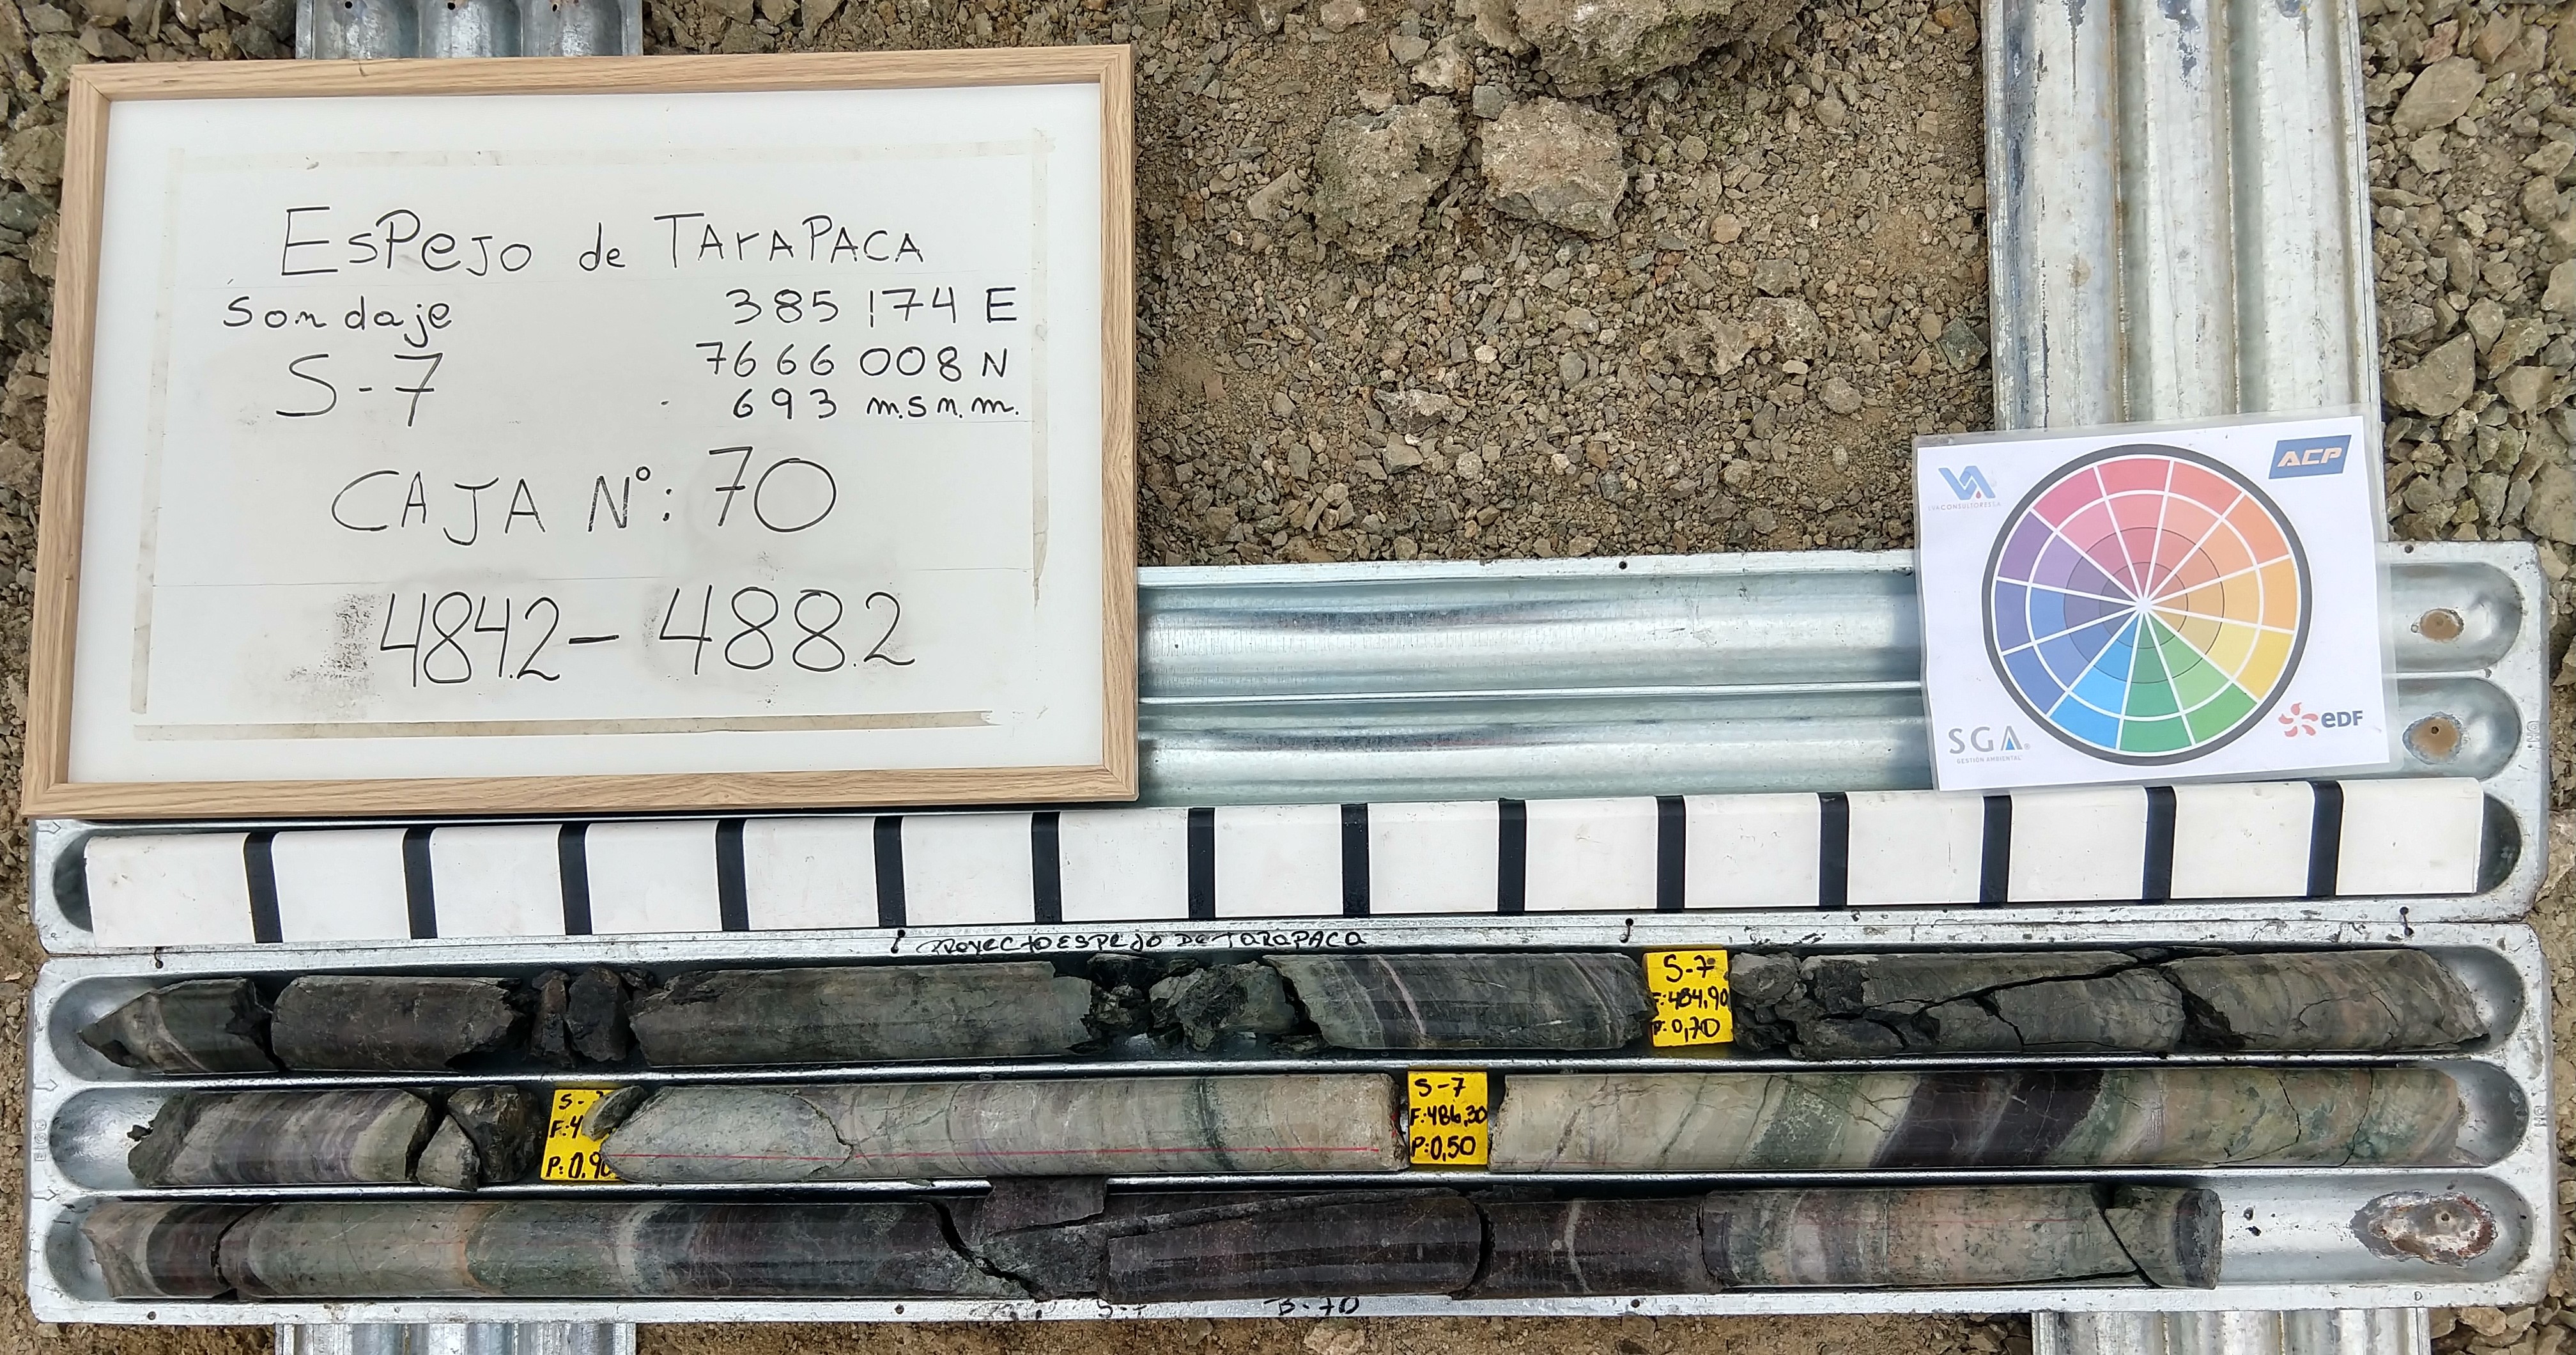 ESPEJO de TArAPACA
Sondaje
385 174 E
S-7
7666 008 N
693 m.s.n.m.
CAJA N°: 70
484.2 - 488.2
VA
CONSULTORES
ACP
SGA
GESTIÓN AMBIENTAL
eDF
PROYECTO ESPEJO DE TARAPACA
S-7
F:484,90
P:0,70
S-
F:4
P:0.90
S-7
F:486,30
P:0,50
B-70